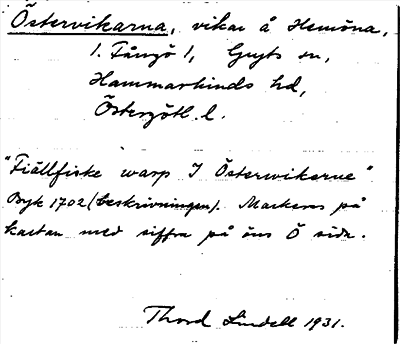 Östervikarna, vikar å Hemöna,
1. Fångö 1, Gryts sn,
Hammarkinds hd,
Östergötl. l.
"Fiällfiske warp I Österwikerne"
Byk 1702 (beskrivningen). Markeras på
kartan med siffra på öns Ö sida.
Thord Lindell 1931.